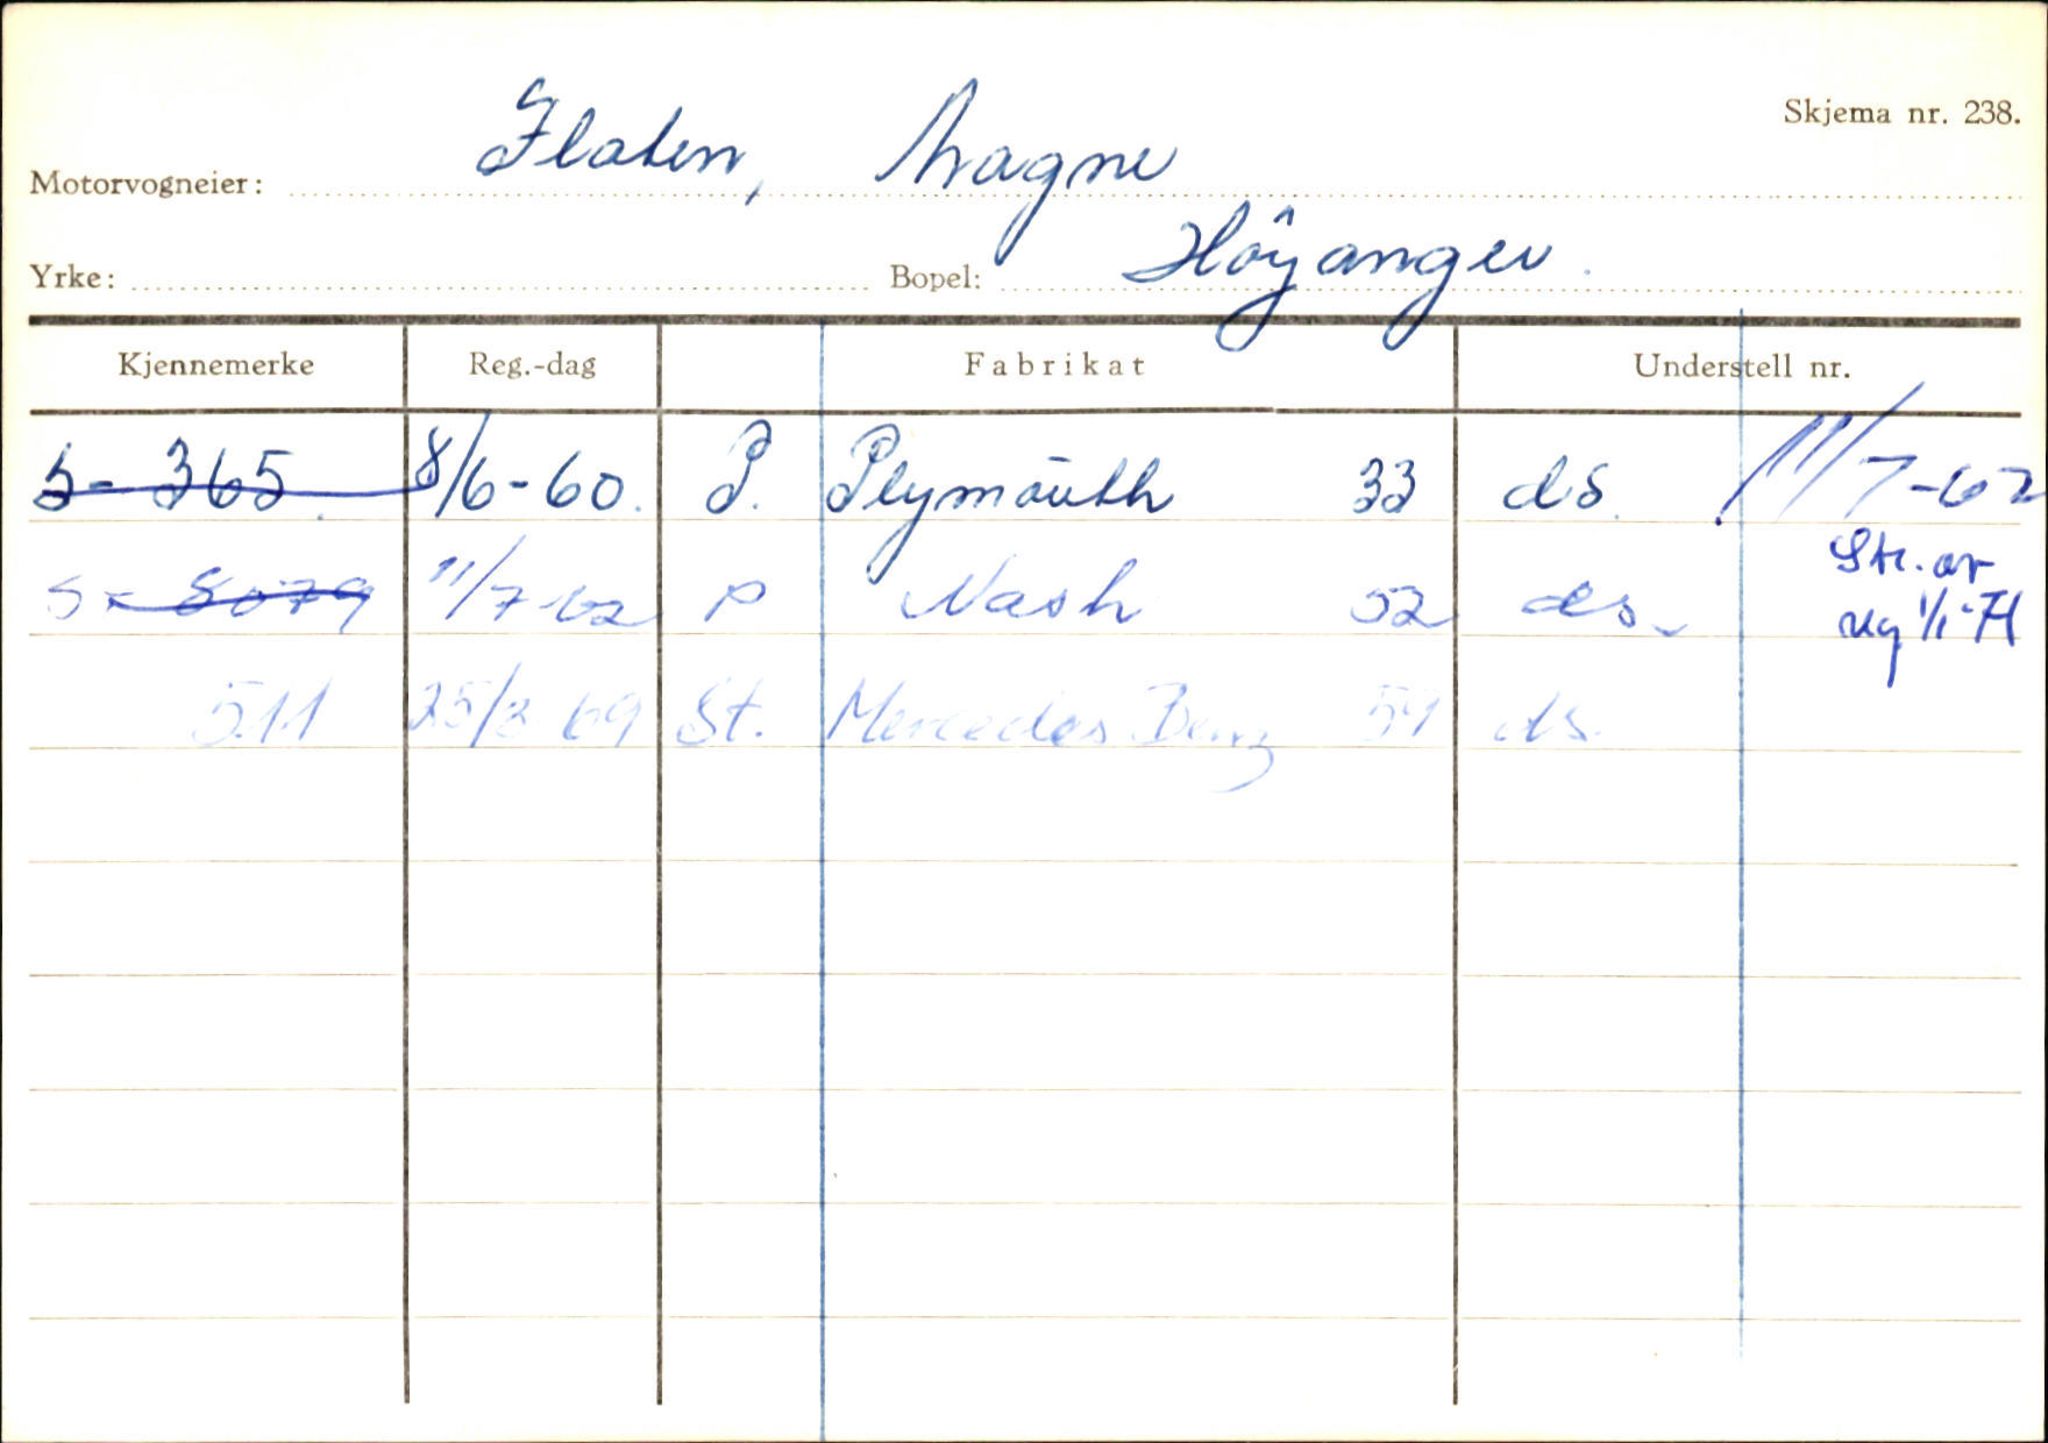 Skjema nr. 238.
Motorvogneier: Flaten, Magne
Yrke: Bopel: Höyanger.
Kjennemerke Reg.-dag Fabrikat Understell nr.
S- 365. 8/6-60. P. Plymouth 33 ds. 11/7-62
S- 8079 11/7-62 P Nash 52 ds. Str. av
reg 1/1-71
511 25/3 69 St. Mercedes Benz 59 ds.